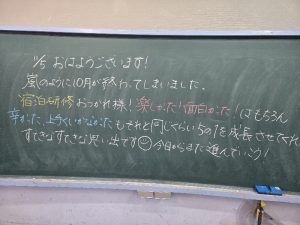 1/5 おはようございます!
嵐のように10月が終わってしまいました。
宿泊研修おつかれ様!楽しかった!面白かった!はもちろん
辛かった、上手くいかなかったもそれと同じくらい5の1を成長させてくれた
すてきなすてきな思い出です 今日からまた進んでいこう!